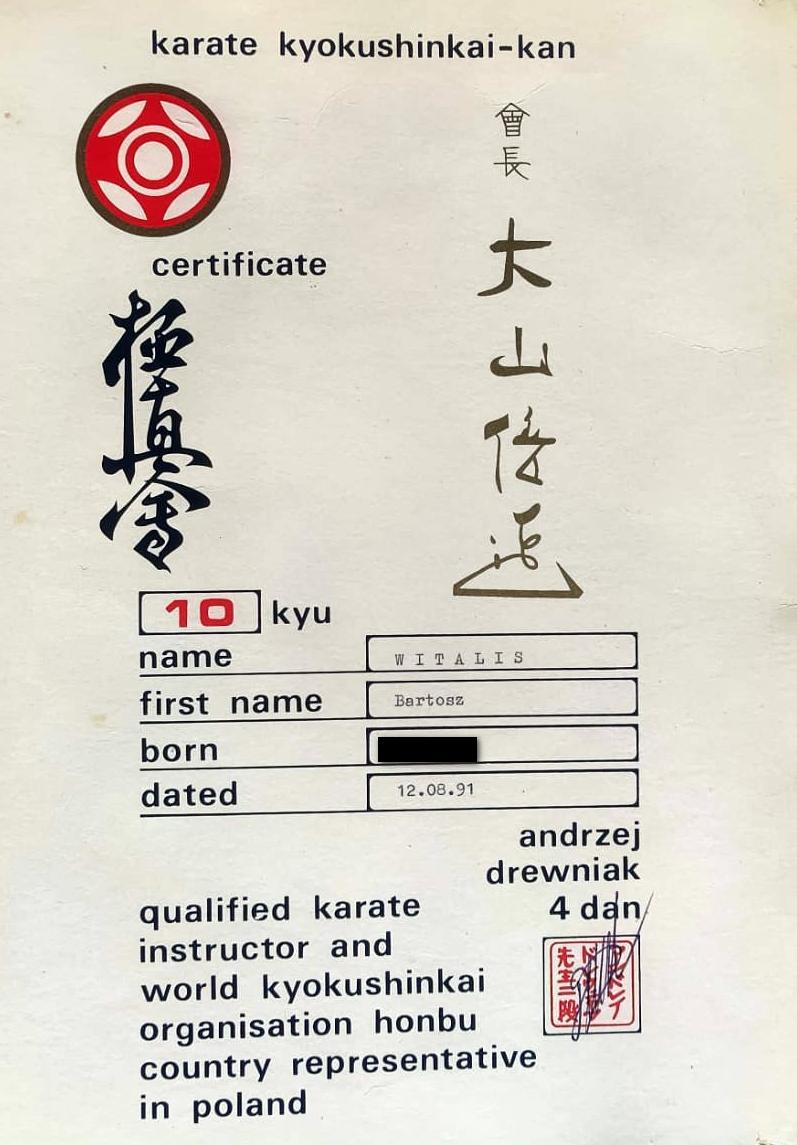 karate kyokushinkai-kan
會長
大山倍達
certificate
極真會
10 kyu
name WITALIS
first name Bartosz
born
dated 12.08.91
andrzej
drewniak
4 dan
qualified karate
instructor and
world kyokushinkai
organisation honbu
country representative
in poland